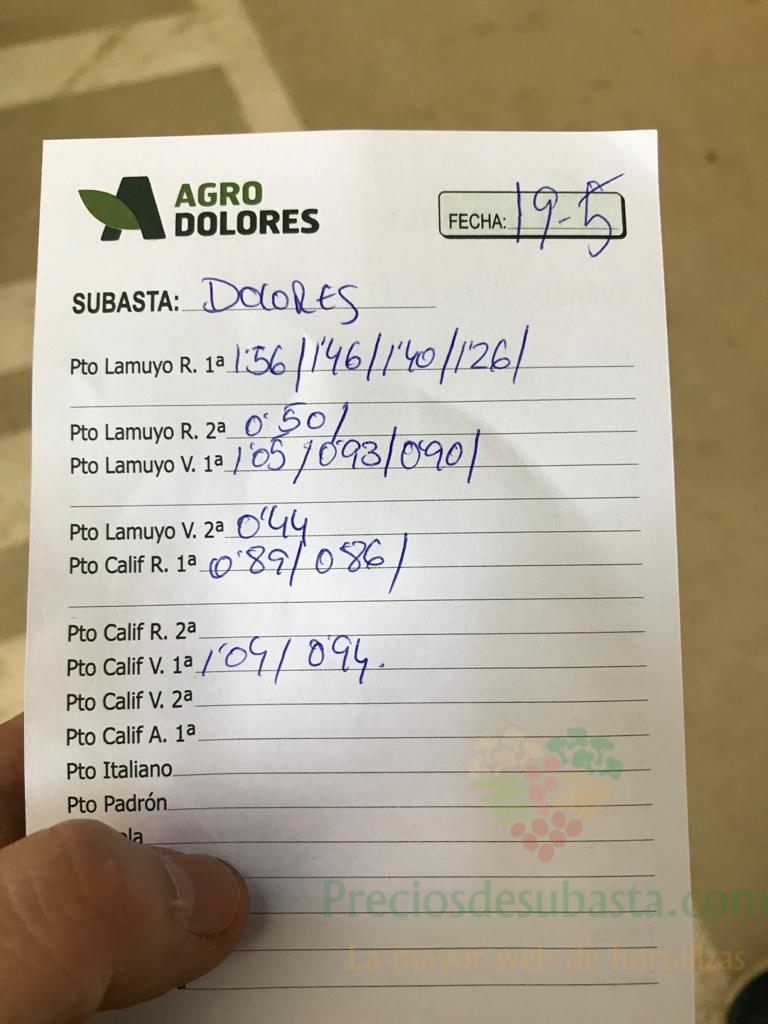 AGRO
DOLORES
FECHA: 19-5
SUBASTA: DOLORES
Pto Lamuyo R. 1ª 1'56/1'46/1'40/1'26/
Pto Lamuyo R. 2ª 0'50/
Pto Lamuyo V. 1ª 1'05/0'93/0'90/
Pto Lamuyo V. 2ª 0'44
Pto Calif R. 1ª 0'89/0'86/
Pto Calif R. 2ª
Pto Calif V. 1ª 1'04/0'94.
Pto Calif V. 2ª
Pto Calif A. 1ª
Pto Italiano
Pto Padrón
Preciosdesubasta.com
La mayor web de hortalizas